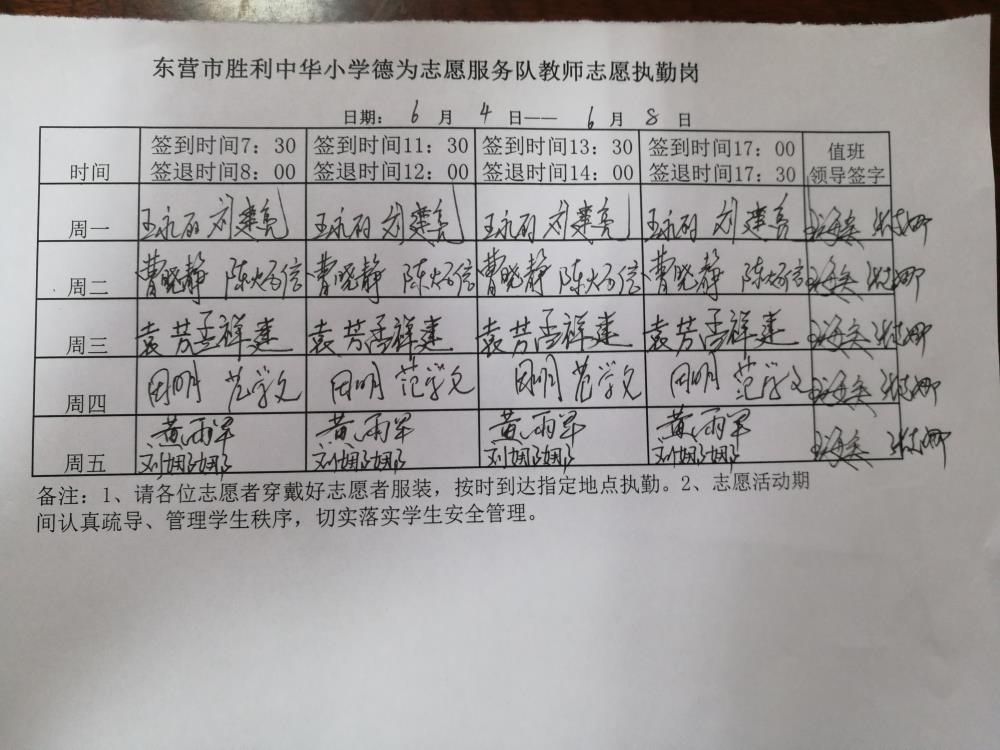 东营市胜利中华小学德为志愿服务队教师志愿执勤岗
日期：6月4日——6月8日
时间 签到时间7：30 签到时间11：30 签到时间13：30 签到时间17：00 值班
签退时间8：00 签退时间12：00 签退时间14：00 签退时间17：30 领导签字
周一 王永 刘建亮 王永 刘建亮 王永 刘建亮 王永 刘建亮
周二 曹晓静 陈 信 曹晓静 陈 信 曹晓静 陈 信 曹晓静 陈 信
周三 袁芳 孟祥建 袁芳 孟祥建 袁芳 孟祥建 袁芳 孟祥建
周四 田明 范学文 田明 范学文 田明 范学文 田明 范学文
周五 黄雨军 黄雨军 黄雨军 黄雨军
刘姻娜 刘姻娜 刘姻娜 刘姻娜
备注：1、请各位志愿者穿戴好志愿者服装，按时到达指定地点执勤。2、志愿活动期
间认真疏导、管理学生秩序，切实落实学生安全管理。